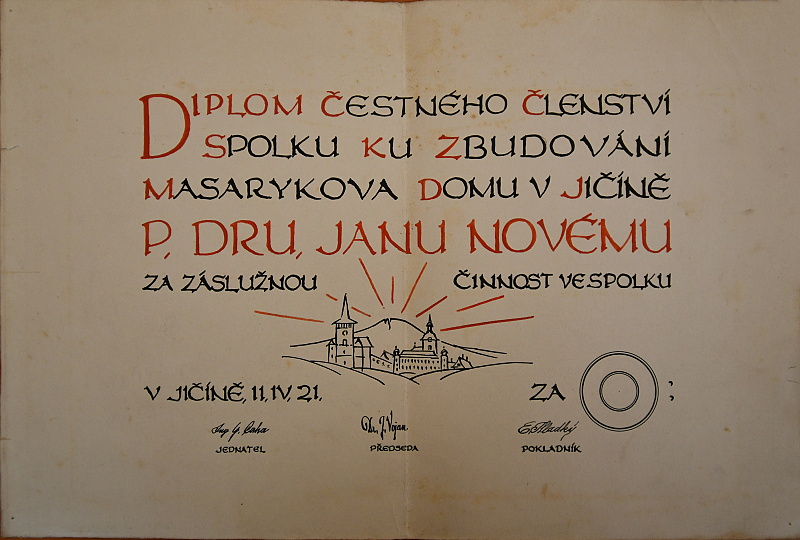 DIPLOM ČESTNÉHO ČLENSTVÍ
SPOLKU KU ZBUDOVÁNÍ
MASARYKOVA DOMU V JIČÍNĚ
P. DRU. JANU NOVÉMU
ZA ZÁSLUŽNOU ČINNOST VE SPOLKU
V JIČÍNĚ, 11. IV. 21. ZA ;
JEDNATEL PŘEDSEDA POKLADNÍK